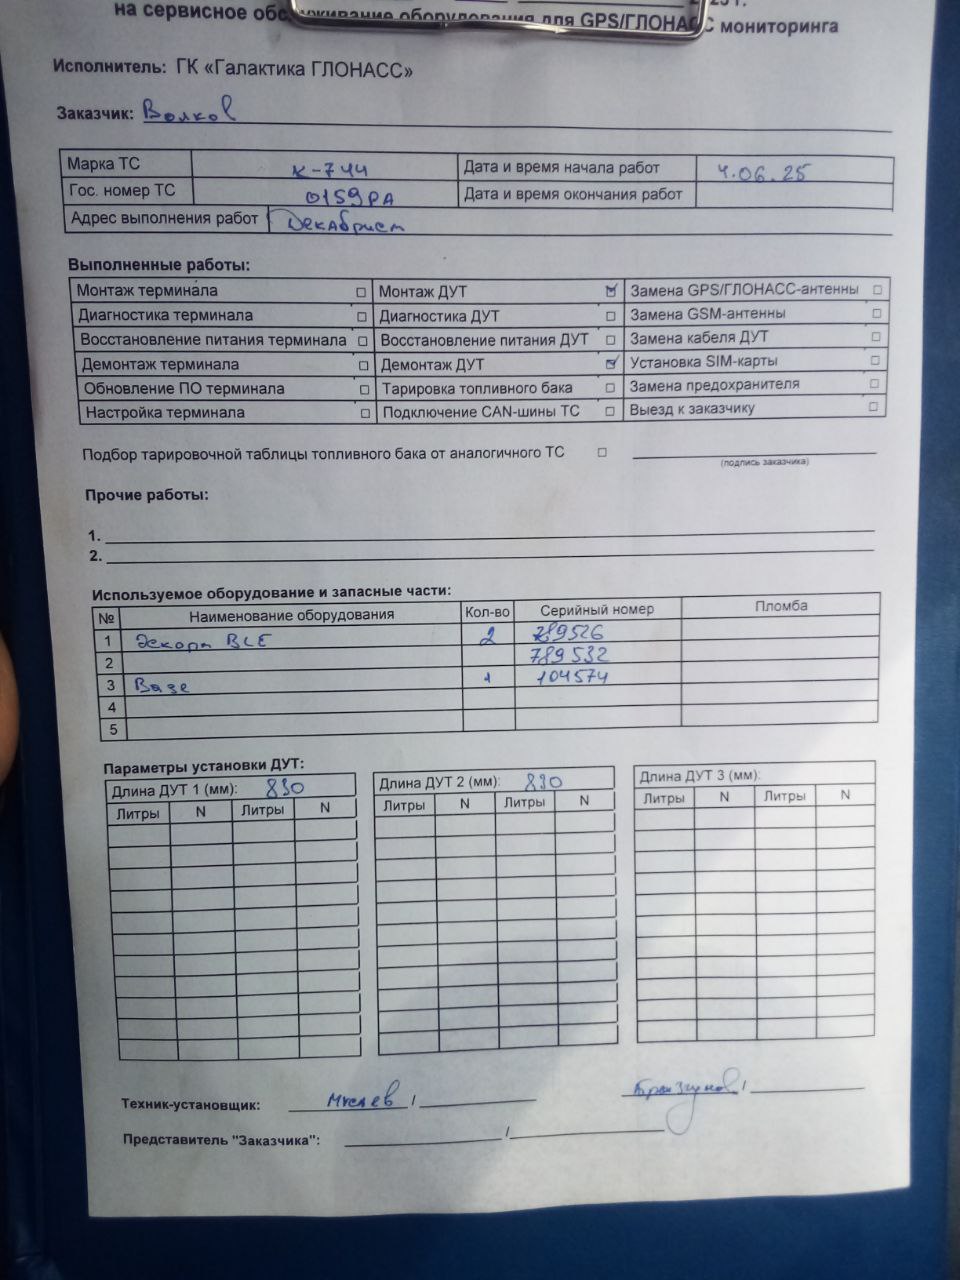 на сервисное обслуживание оборудования для GPS/ГЛОНАСС мониторинга
Исполнитель: ГК «Галактика ГЛОНАСС»
Заказчик: Волков
Марка ТС К-744 Дата и время начала работ 4.06.25
Гос. номер ТС 0159РА Дата и время окончания работ
Адрес выполнения работ Декабрист
Выполненные работы:
Монтаж терминала ☐ Монтаж ДУТ ☑ Замена GPS/ГЛОНАСС-антенны ☐
Диагностика терминала ☐ Диагностика ДУТ ☐ Замена GSM-антенны ☐
Восстановление питания терминала ☐ Восстановление питания ДУТ ☐ Замена кабеля ДУТ ☐
Демонтаж терминала ☐ Демонтаж ДУТ ☑ Установка SIM-карты ☐
Обновление ПО терминала ☐ Тарировка топливного бака ☐ Замена предохранителя ☐
Настройка терминала ☐ Подключение CAN-шины ТС ☐ Выезд к заказчику ☐
Подбор тарировочной таблицы топливного бака от аналогичного ТС ☐
(подпись заказчика)
Прочие работы:
1.
2.
Используемое оборудование и запасные части:
№ Наименование оборудования Кол-во Серийный номер Пломба
1 Эскорт BLE 2 789526
2 789532
3 Base 1 104574
4
5
Параметры установки ДУТ:
Длина ДУТ 1 (мм): 830 Длина ДУТ 2 (мм): 830 Длина ДУТ 3 (мм):
Литры N Литры N Литры N Литры N Литры N Литры N
Техник-установщик: /  /
Представитель "Заказчика": /